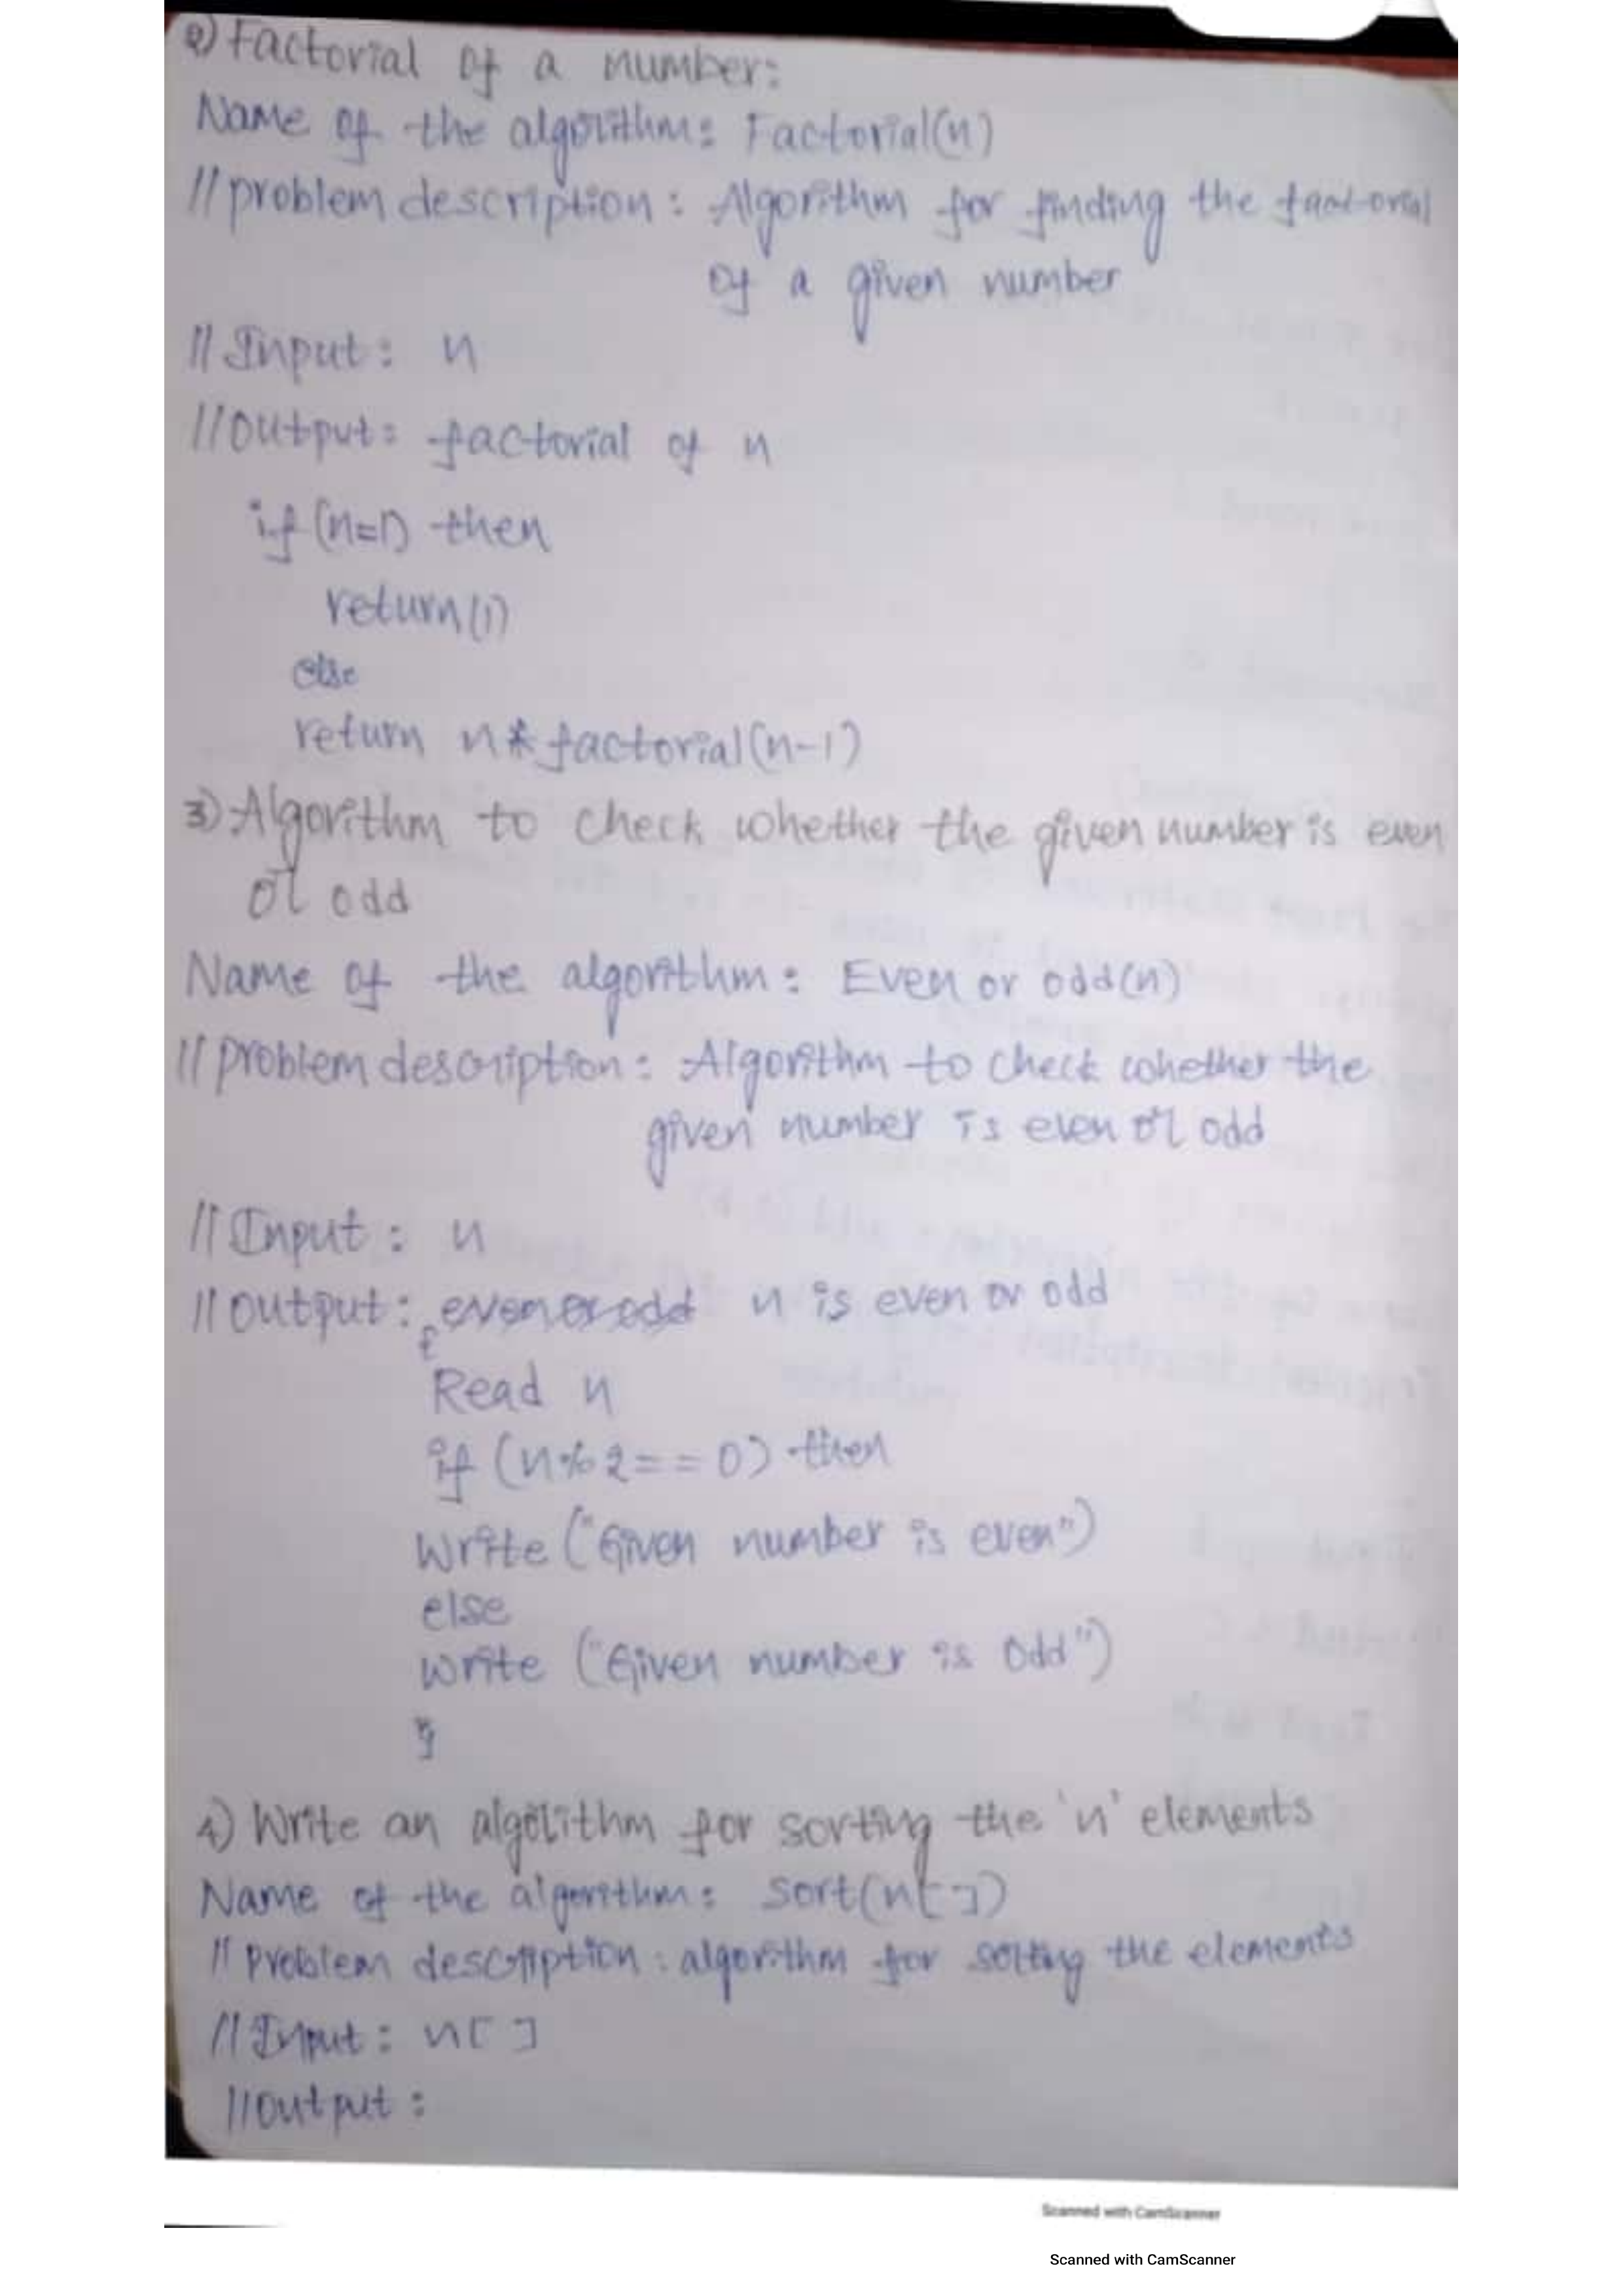 2) Factorial of a number:
Name of the algorithm: Factorial(n)
// problem description: Algorithm for finding the factorial
of a given number
// Input: n
// Output: factorial of n
if (n=1) then
return(1)
else
return n * factorial(n-1)
3) Algorithm to check whether the given number is even
or odd
Name of the algorithm: Even or odd(n)
// problem description: Algorithm to check whether the
given number is even or odd
// Input: n
// output: even or odd n is even or odd
{
Read n
if (n%2==0) then
Write ("Given number is even")
else
write ("Given number is odd")
}
4) Write an algorithm for sorting the 'n' elements
Name of the algorithm: sort(n[])
// Problem description: algorithm for sorting the elements
// Input: n[]
// output:
Scanned with CamScanner
Scanned with CamScanner